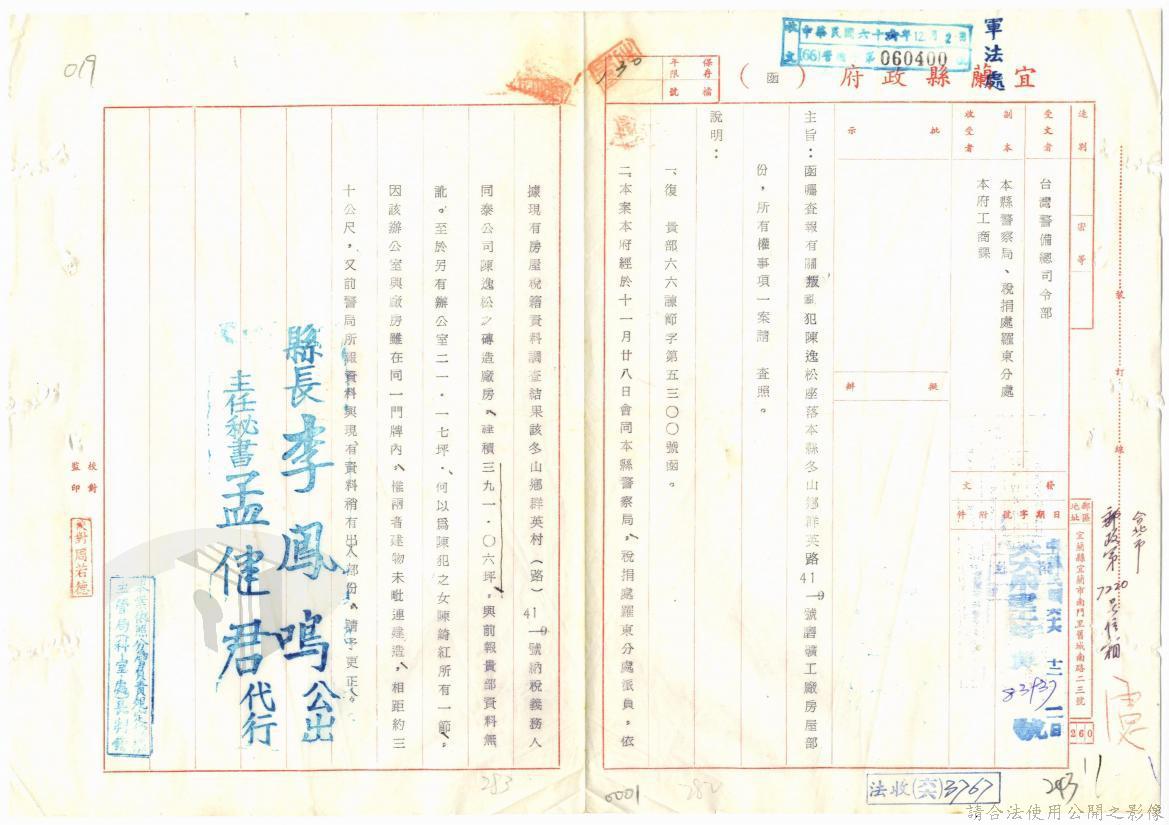 軍法處
中華民國六十六年12月2日
(66)
第
060400
宜蘭縣政府(函)
保存年限
檔號
速別
密等
受文者
台灣警備總司令部
副本收受者
本縣警察局、稅捐處羅東分處
本府工商課
批示
擬辦
發文
日期
字號
附件
十二
83437
號
郵區
地址
宜蘭縣宜蘭市南門里舊城南路二三號
260
台北市
郵政第7220號信箱
裝訂線
主旨:函囑查報有關叛亂犯陳逸松座落本縣冬山鄉群英路41-9號磨礦工廠房屋部
份,所有權事項一案請 查照。
說明:
一、復 貴部六六諫節字第五三〇〇號函。
二、本案本府經於十一月廿八日會同本縣警察局、稅捐處羅東分處派員,依
據現有房屋稅籍資料調查結果該冬山鄉群英村(路)41-9號納稅義務人
同泰公司陳逸松之磚造廠房,建積三九一.〇六坪,與前報貴部資料無
訛。至於另有辦公室二一.一七坪,何以為陳犯之女陳綺紅所有一節,
因該辦公室與廠房雖在同一門牌內,權兩者建物未毗連建造,相距約三
十公尺,又前警局所報資料與現有資料稍有出入部份,請予更正。
縣長李鳳鳴公出
主任秘書孟健君代行
校對
監印
校對周若德
019
283
0001
282
法收(六六)3767
243
請合法使用公開之影像